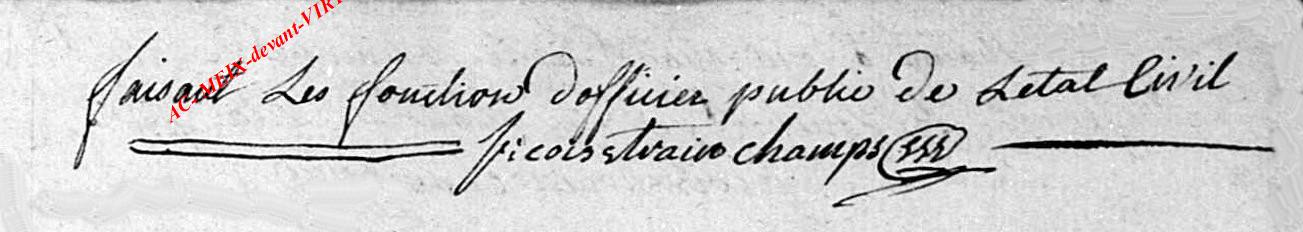 AC-MEIX-devant-VIRT
faisant Les fonction dofficier public de Letat Civil
strainchamps